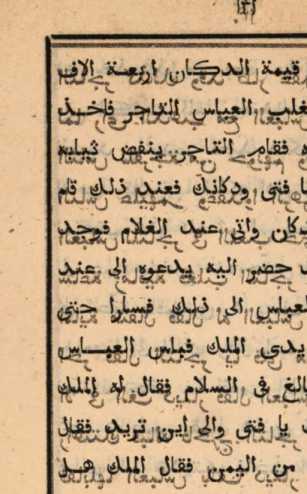 قيمة الدكان اربعة الاف
فغلب العباس التاجر فاخذ
فقام التاجر ينفض ثيابه
يا فتى ودكانك فعند ذلك قام
واتى عند الغلام فوجد
حضر اليه يدعوه الى عند
العباس الى ذلك فسارا حتى
يدى الملك فباس العباس
بالغ فى السلام فقال له الملك
يا فتى والى اين تريد فقال
من اليمن فقال الملك هل